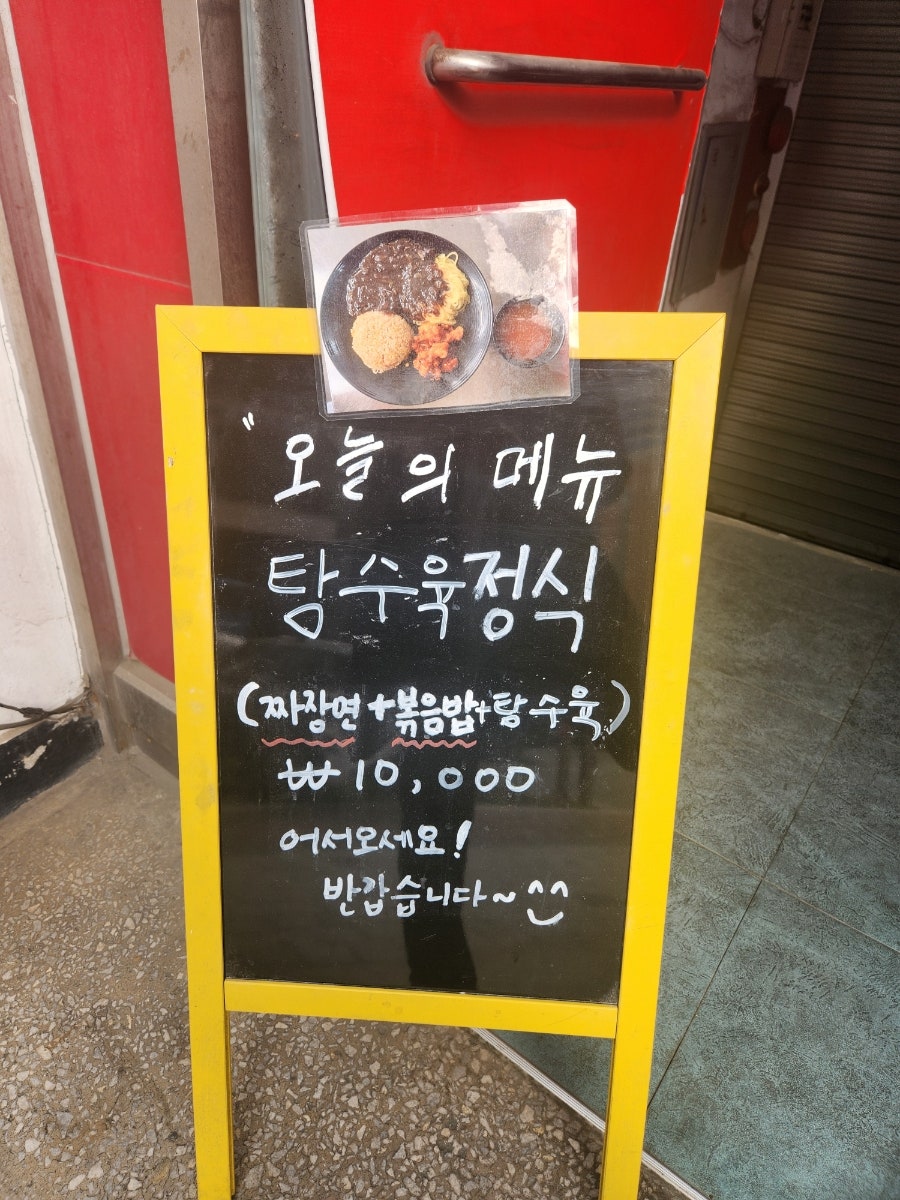 " 오늘의 메뉴
탕수육정식
(짜장면+볶음밥+탕수육)
₩10,000
어서오세요!
반갑습니다~ ^^